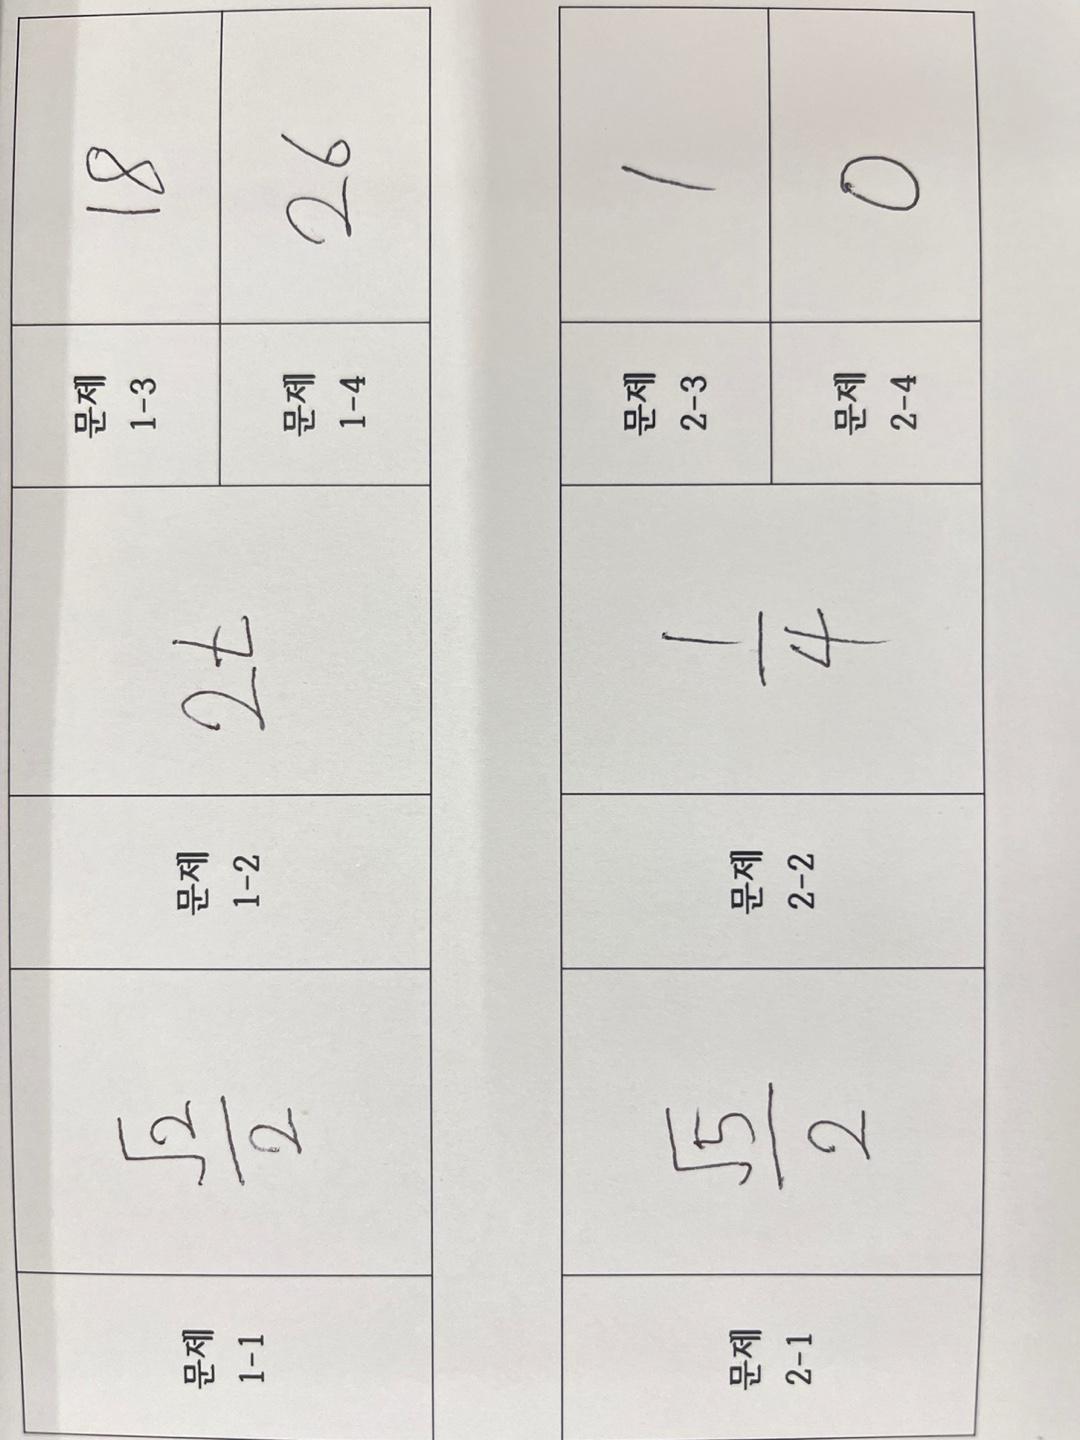 문제
1-1
√2/2
문제
1-2
27
문제
1-3
18
문제
1-4
26
문제
2-1
√5/2
문제
2-2
1/4
문제
2-3
1
문제
2-4
0